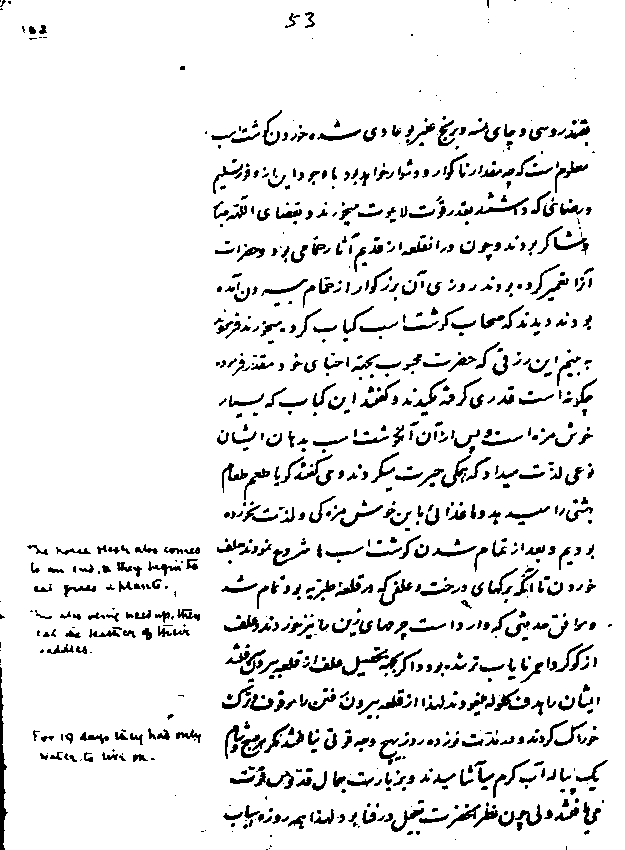 53
بقند روسی و چای و برنج عنبربو عادی شده خوردن گوشت اسب
معلوم است که چه مقدار ناگوار و دشوار خواهد بود با وجود این از وفور تسلیم
و رضائی که داشتند بقدر قوت لایموت میخورند و بقضای الله
و شاکر بودند و چون در آنقلعه از قدیم آثار حمامی بود و حضرات
آنرا تعمیر کرده بودند روزی آن بزرگوار از حمام بیرون آمده
بودند دیدند که صحاب گوشت اسب کباب کرده میخورند فرمودند
به بینم این رزقی که حضرت محبوب بجهة احبای خود مقدر فرموده
چگونه است قدری گرفته میل نمودند و گفتند این کباب که بسیار
خوش مزه است و پس از آن گوشت اسب بدهان ایشان
نوعی لذت میداد که همگی حیرت میکردند و می گفتند گویا طعم طعام
بهشتی را میدهد و ما غذائی باین خوش مزه گی و لذت نخورده
بودیم و بعد از تمام شدن گوشت اسب ها شروع نمودند بعلف
خوردن تا آنکه برگهای درخت و علفی که در قلعه طبرسیه بود تمام شد
و موافق حدیثی که وارد است چرمهای زین را نیز خوردند و علف
از کوگرد احمر نایاب تر شده بود و اگر بجهة تحصیل علف از قلعه بیرون میرفتند
ایشان را هدف گلوله مینمودند لهذا از قلعه بیرون رفتن را موقوف و ترک
خوراک کردند و در مدت نوزده روز هیچ وجه قوتی نیافتند مگر هر صبح و شام
یک پیاله آب گرم میآشامیدند و بزیارت جمال قدوس قوت
می یافتند ولی چون نظر آنحضرت در فنا بود لهذا همه روزه باب
The horse flesh also comes
to an end, & they begin to
eat grass & plants.
This also being used up, they
eat the leather of their
saddles.
For 19 days they had only
water to live on.